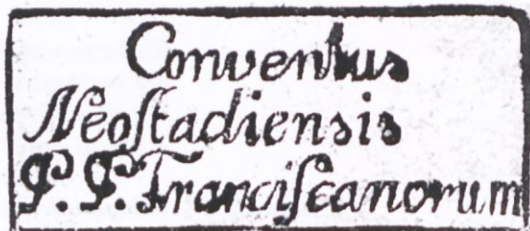 Conventus
Neoſtadiensis
P. P. Franciſcanorum